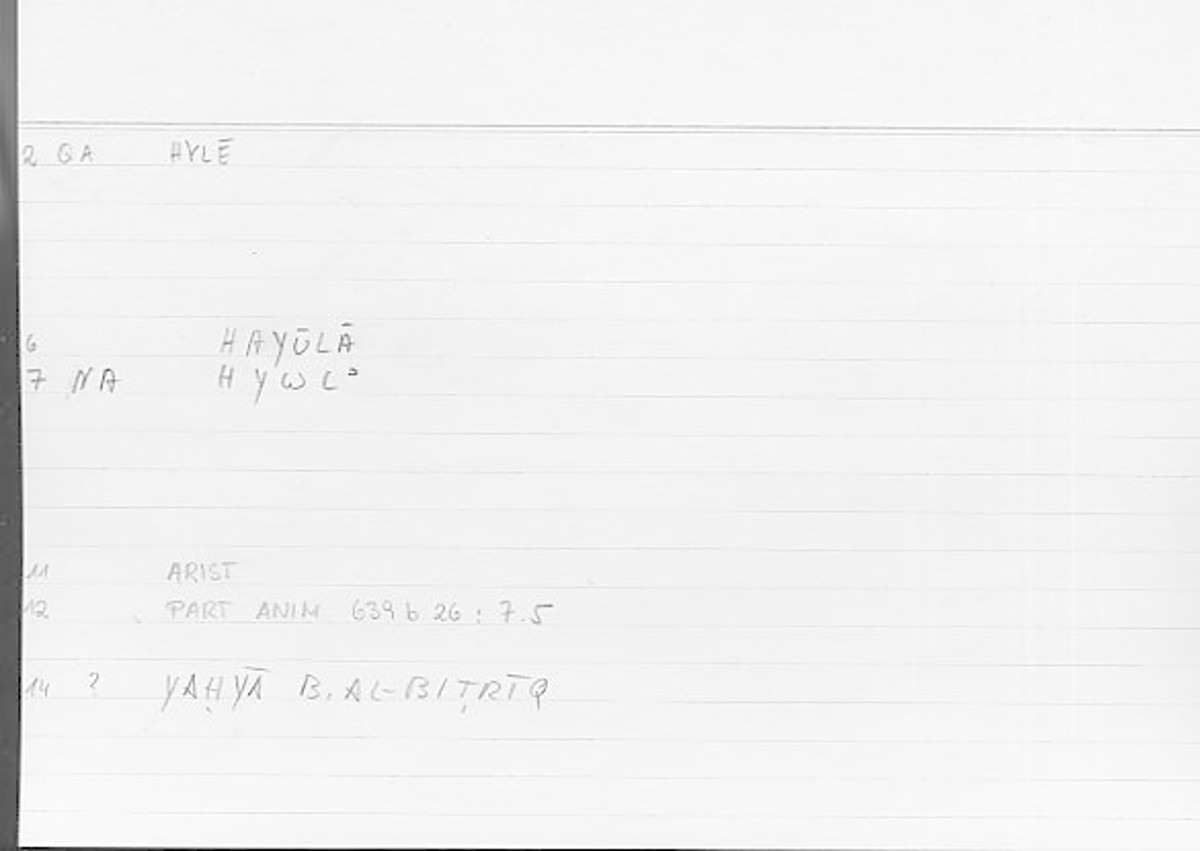 2 GA HYLĒ
6 HAYŪLĀ
7 NA HYWLʾ
11 ARIST
12 PART ANIM 639 b 26 : 7.5
14 ? YAḤYĀ B. AL-BIṬRĪQ